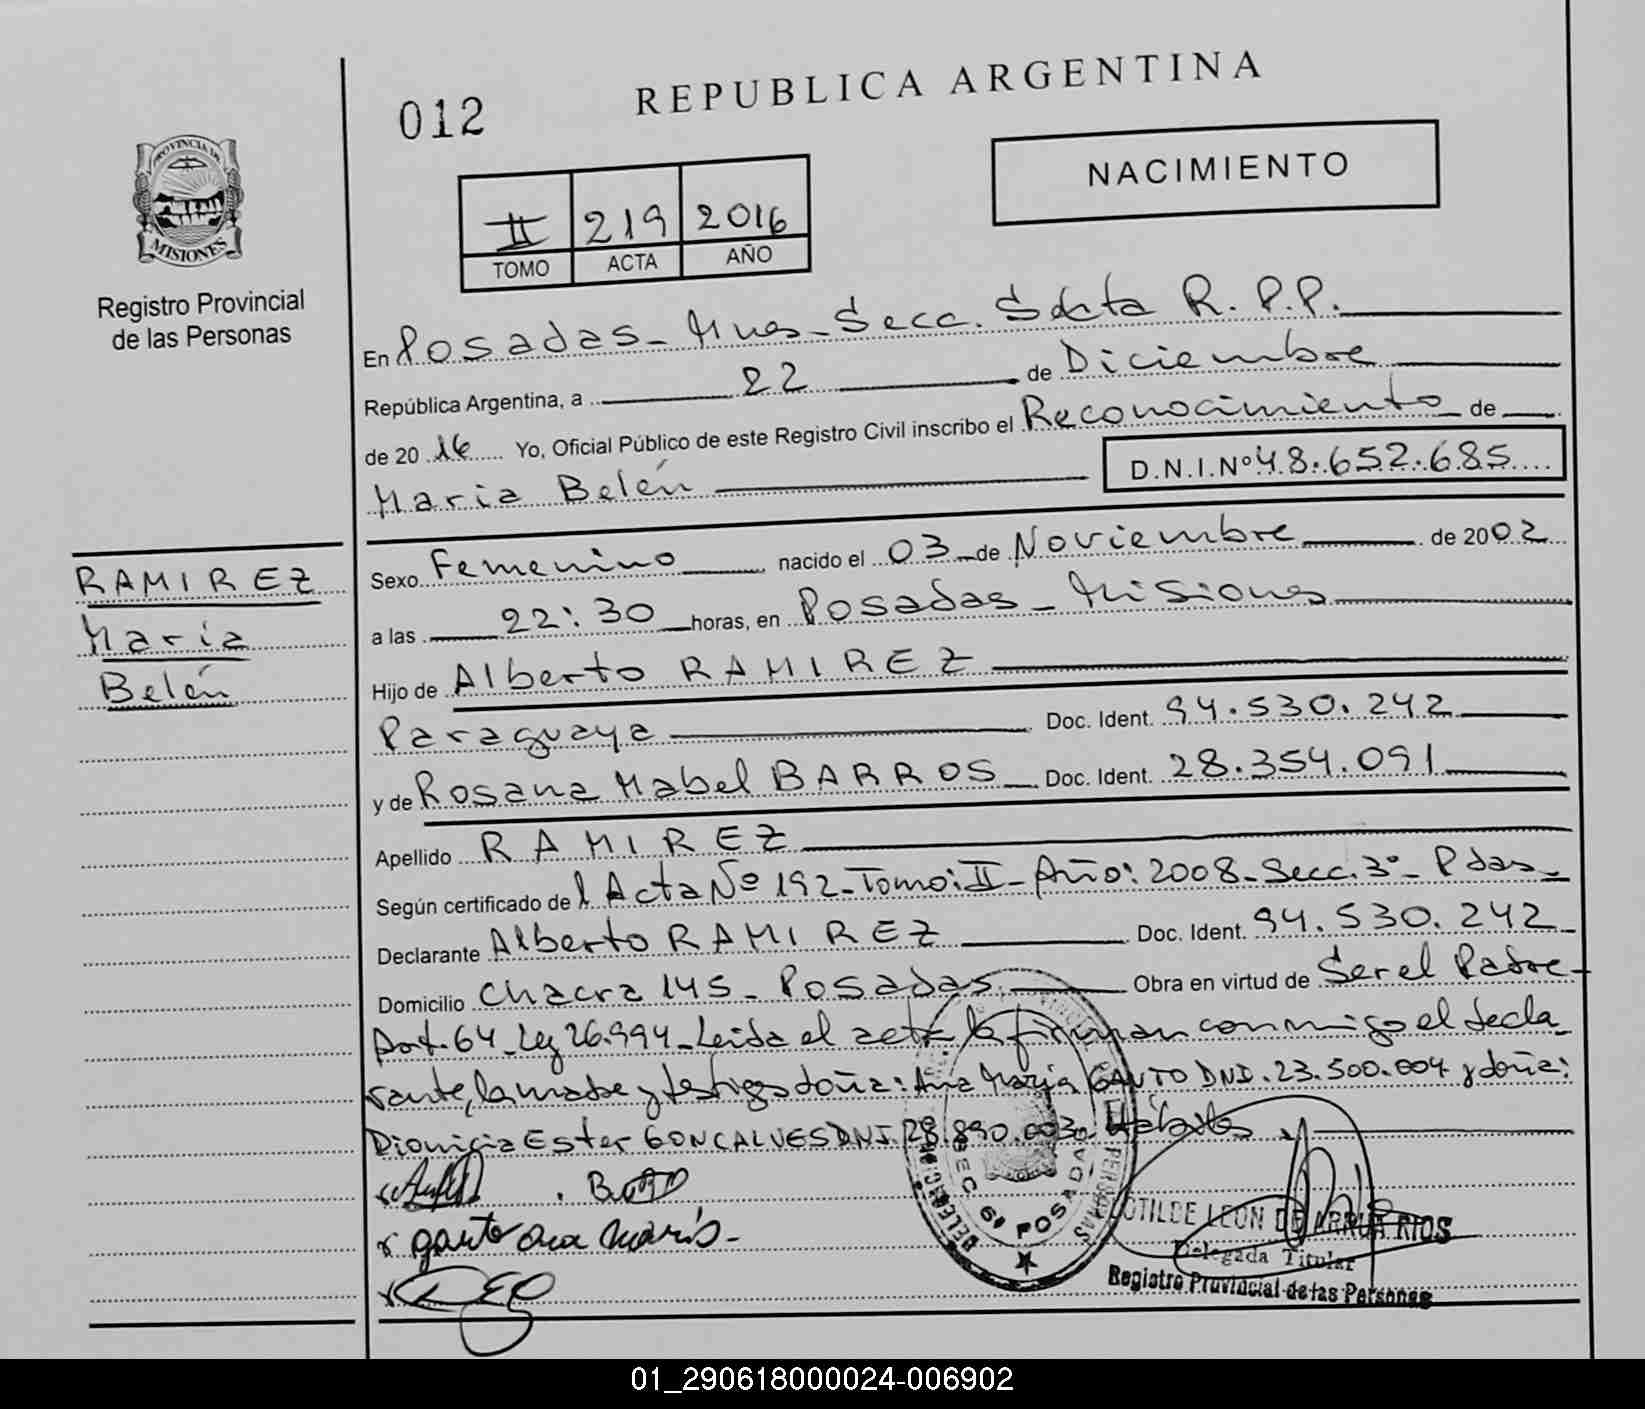 012
REPUBLICA ARGENTINA
NACIMIENTO
PROVINCIA DE
MISIONES
Registro Provincial
de las Personas
II 219 2016
TOMO ACTA AÑO
En Posadas - Mnes - Secc. Sexta R.P.P.
República Argentina, a 22 de Diciembre
de 2016 Yo, Oficial Público de este Registro Civil inscribo el Reconocimiento de
María Belén D.N.I.Nº 48.652.685
RAMIREZ
María
Belén
Sexo Femenino nacido el 03 de Noviembre de 2002
a las 22:30 horas, en Posadas - Misiones
Hijo de Alberto RAMIREZ
Paraguaya Doc. Ident. 94.530.242
y de Rosana Mabel BARROS Doc. Ident. 28.354.091
Apellido RAMIREZ
Según certificado del Acta Nº 192 - Tomo: II - Año: 2008 - Secc. 3º - Pdas -
Declarante Alberto RAMIREZ Doc. Ident. 94.530.242
Domicilio Chacra 145 - Posadas Obra en virtud de Ser el Padre -
Art. 64 - Ley 26.994 - Leída el acta la firman conmigo el decla-
rante, la madre y testigos doña: Ana María GAUTO DNI. 23.500.004 y doña:
Dionicia Ester GONCALVES DNI. 28.890.003
gauto ana maría
SEC. 6ª POSADAS
CLOTILDE LEON DE ARRUA RIOS
Delegada Titular
Registro Provincial de las Personas
01_290618000024-006902